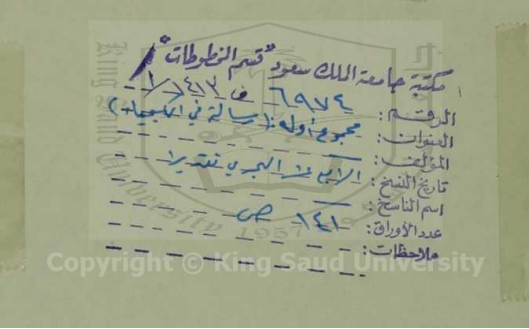 مكتبة جامعة الملك سعود "قسم المخطوطات"
الرقم: ٦٩٧٤ ف ١٤١٣/١
العنوان: مجموع أوله: (رسالة في الكيمياء)
المؤلف:
تاريخ النسخ: الرابع عشر الهجري تقديرا
اسم الناسخ:
عدد الأوراق: ١٤١ ص
ملاحظات:
King Saud University
1957
Copyright © King Saud University